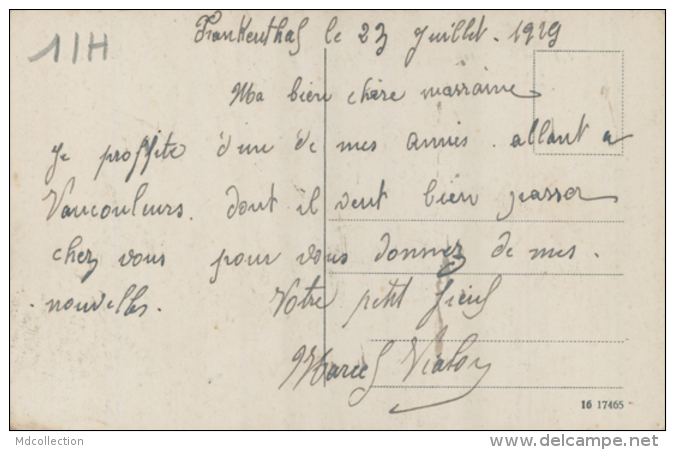 Frankenthal le 23 Juillet. 1919
11H
Ma bien chère marraine
Je proffite d'une de mes amies. allant a
Vaucouleurs. dont il veut bien passer
chez vous pour vous donnez de mes.
nouvelles. Votre petit fieul
Marcel
16 17465
Mdcollection
www.delcampe.net